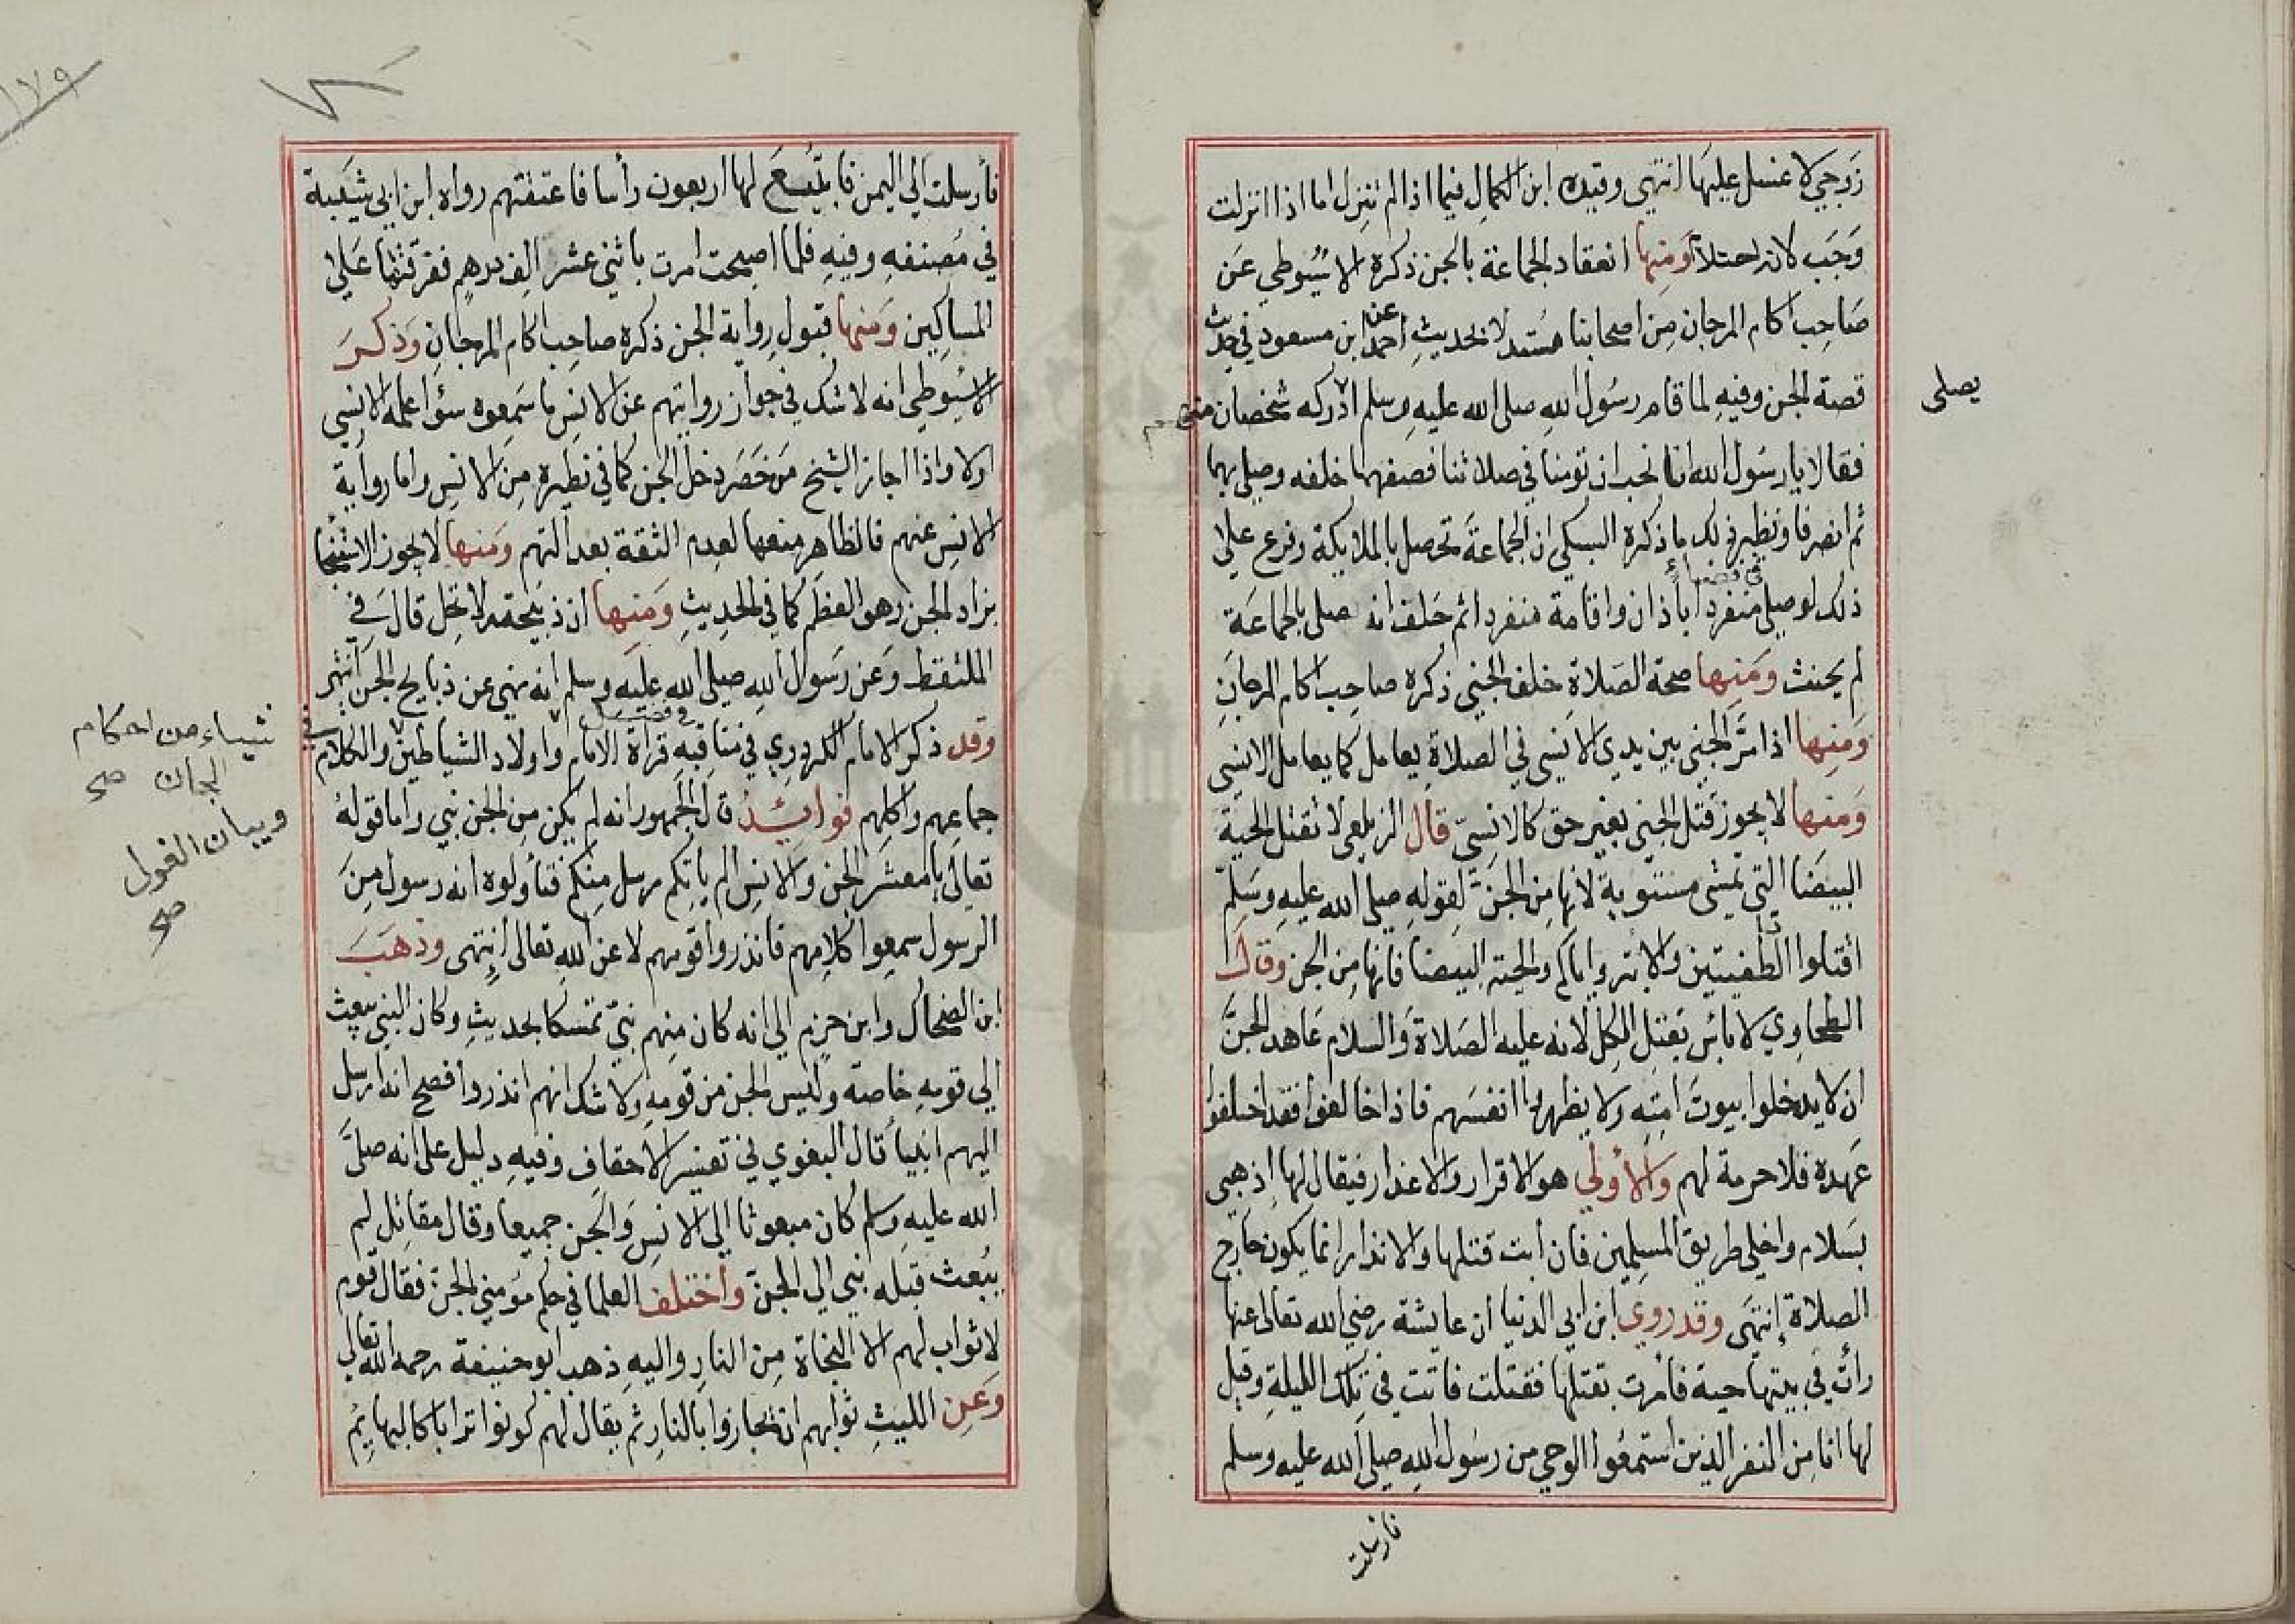 زوجي لا غسل عليها انتهى وقيده ابن الكمال فيما اذا لم تنزل اما اذا انزلت
وجب لانه احتلام ومنها انعقاد الجماعة بالجن ذكره الاسيوطي عن
صاحب آكام المرجان من اصحابنا مستدلا بحديث احمد عن ابن مسعود في حديث
قصة الجن وفيه لما قام رسول الله صلى الله عليه وسلم يصلى ادركه شخصان منهم
فقالا يا رسول الله انا نحب ان تؤمنا في صلاتنا فصفهما خلفه وصلى بهما
ثم انصرفا ونظير ذلك ما ذكره السبكي ان الجماعة تحصل بالملايكة وفرع على
ذلك لو صلى منفردا في فضاء باذان واقامة منفردا ثم حلف انه صلى بالجماعة
لم يحنث ومنها صحة الصلاة خلف الجني ذكره صاحب اكام المرجان
ومنها اذا مر الجني بين يدي الانسي في الصلاة يعامل كما يعامل الانسي
ومنها لا يجوز قتل الجني بغير حق كالانسي قال الزيلعي لا تقتل الحية
البيضا التي تمشي مستوية لانها من الجن لقوله صلى الله عليه وسلم
اقتلوا ذا الطفيتين والابتر واياكم والحية البيضا فانها من الجن وقال
الطحاوي لا بأس بقتل الكل لانه عليه الصلاة والسلام عاهد الجن
ان لا يدخلوا بيوت امته ولا يظهروا انفسهم فاذا خالفوا فقد اخلفوا
عهده فلا حرمة لهم والأولى هو الاقرار والاعذار فيقال لها اذهبي
بسلام واخلي طريق المسلمين فان أبت قتلها والانذار انما يكون خارج
الصلاة إنتهى وقد روى ابن ابي الدنيا أن عايشة رضي الله تعالى عنها
رأت في بيتها حية فأمرت بقتلها فقتلت فاتت في تلك الليلة وقيل
لها انا من النفر الذين استمعوا الوحي من رسول الله صلى الله عليه وسلم
فارسلت
١٧٩
فأرسلت الى اليمن فابتيع لها اربعون رأسا فاعتقتهم رواه ابن ابي شيبة
في مصنفه وفيه فلما اصبحت امرت باثني عشر الف درهم ففرقتها على
المساكين ومنها قبول رواية الجن ذكره صاحب آكام المرجان وذكر
الاسيوطي انه لا شك في جواز روايتهم عن الانس ما سمعوه سؤا علمه الانسي
اولا واذا اجاز الشيخ من حضر دخل الجن كما في نظيره من الانس واما رواية
الانس عنهم فالظاهر منعها لعدم الثقة بعدالتهم ومنها لا يجوز الاستنجا
بزاد الجن وهو العظم كما في الحديث ومنها ان ذبيحته لا تحل قال في
الملتقط وعن رسول الله صلى الله عليه وسلم انه نهى عن ذبايح الجن انتهى
وقد ذكر الامام الكردري في مناقبه في فصل قراة الامام واولاد الشياطين والكلام في
جماعهم واكلهم فوائد قال الجمهور انه لم يكن من الجن نبي واما قوله
تعالى يا معشر الجن والانس الم ياتكم رسل منكم فتأولوه انه رسول من
الرسول سمعوا كلامهم فانذروا قومهم لا عن الله تعالى إنتهى وذهب
ابن الضحاك وابن حزم الى انه كان منهم نبي تمسكا بحديث وكان النبي يبعث
الى قومه خاصة وليس الجن من قومه ولا شك انهم انذروا فصح انه ارسل
اليهم انبيا قال البغوي في تفسير الاحقاف وفيه دليل على انه صلى
الله عليه وسلم كان مبعوثا إلى الانس والجن جميعا وقال مقاتل لم
يبعث قبله نبي الى الجن وأختلف العلما في حكم مؤمني الجن فقال قوم
لا ثواب لهم الا النجاة من النار واليه ذهب ابو حنيفة رحمه الله تعالى
وعن الليث ثوابهم ان يجازوا بالنار ثم يقال لهم كونوا ترابا كالبهايم
شياء من احكام
الجان صح
وبيان الغول
صح